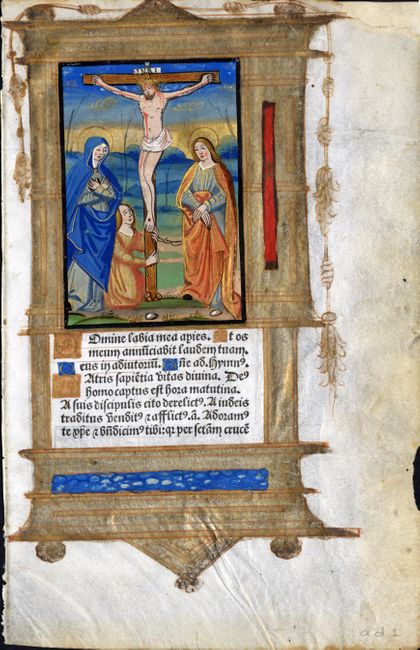 INRI
Domine labia mea apies. Et os
meum annũciabit laudem tuam.
Deus in adiutoriũ. Dñe ad. Hymnꝰ.
Patris sapiẽtia vitas divina. Deꝰ
homo captus est hora matutina.
A suis discipulis cito derelictꝰ. A iudeis
traditus venditꝰ ⁊ afflictꝰ. a͂. Adoramꝰ
te xp̃e ⁊ bñdicimꝰ tibi: qr per sctãm crucẽ
ad 1